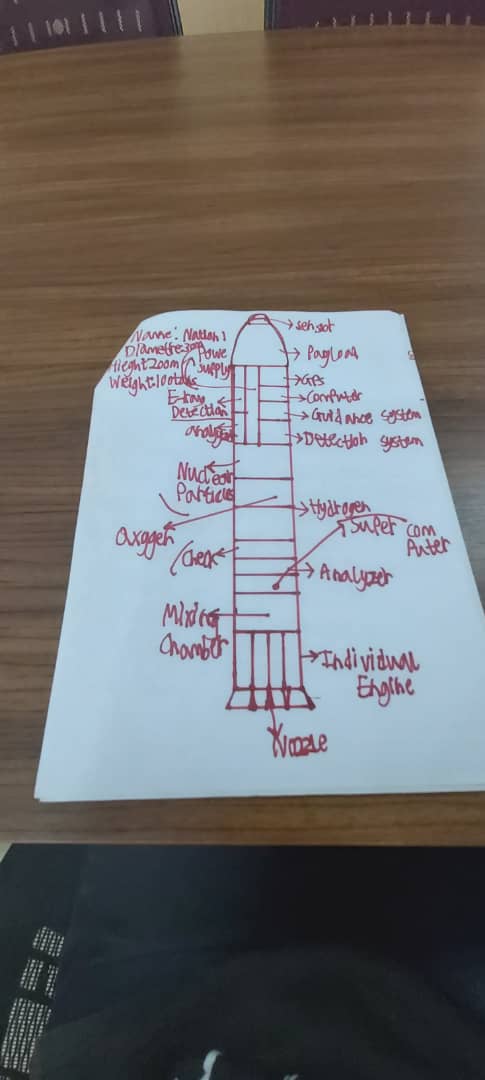 sensor
Name: Nation1
Diametre 300
Height 200m
Weight 100tons
Power
Supply
Payload
GPS
Computer
Guidance system
Detection system
E-
Detection
analyzer
Nuclear
Particles
Hydrogen
Super com
Puter
Oxygen
Check
Analyzer
Mixing
Chamber
Individual
Engine
Nozzle